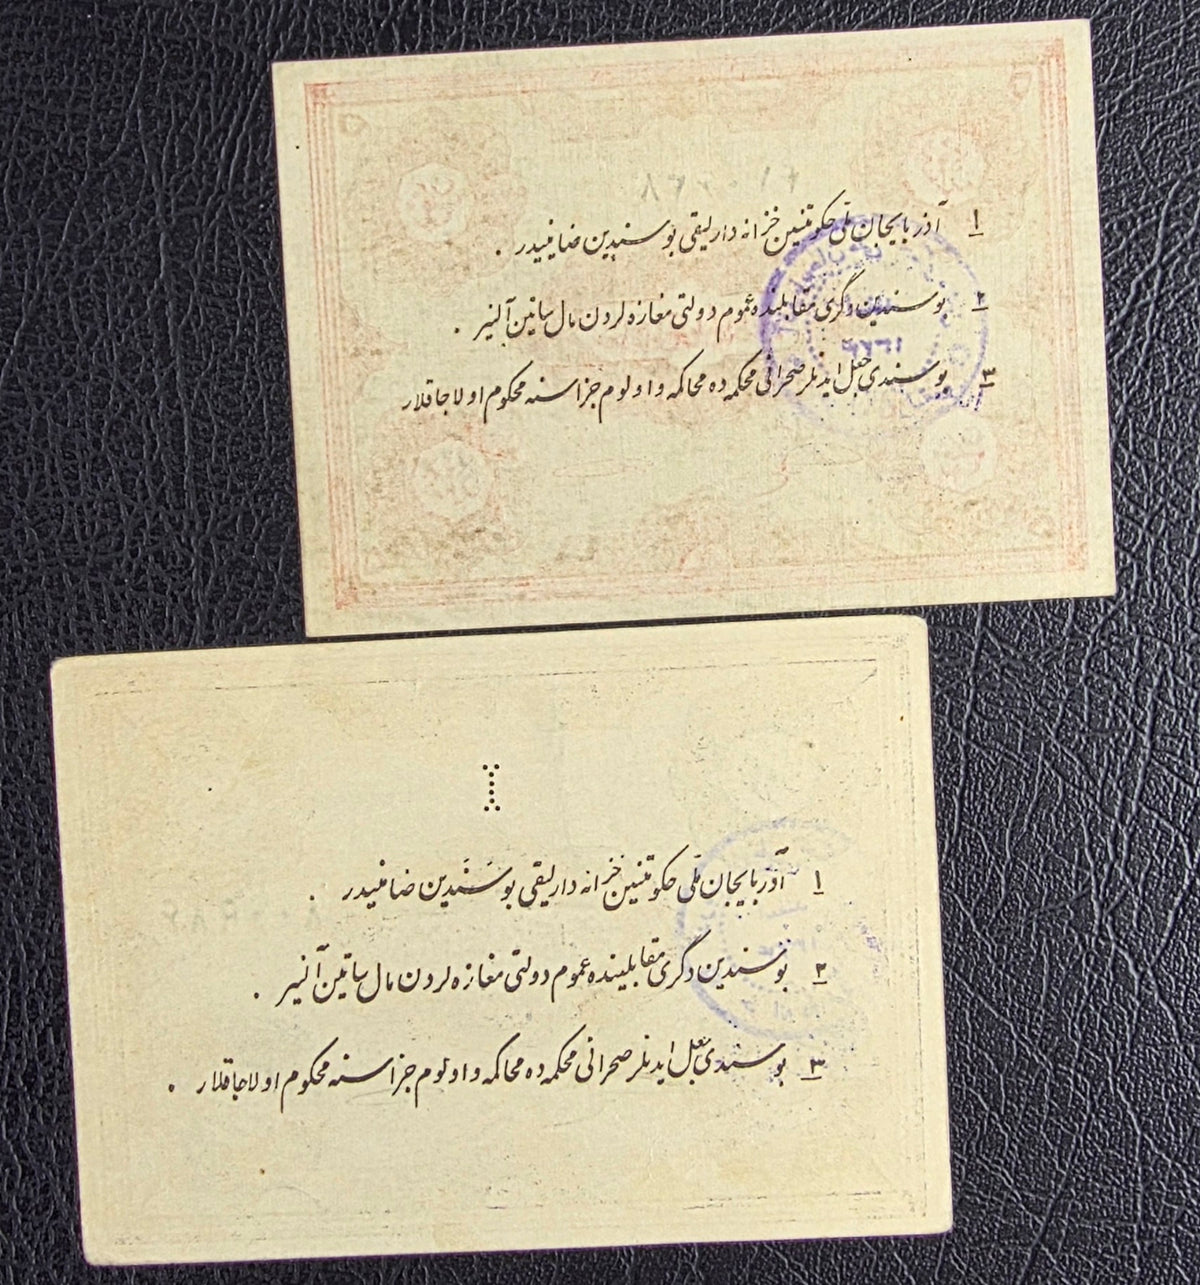 ۱ آذربایجان ملّی حکومتنین خزانه دارلیقی بو سندین ضامنیدر .
۲ بو سندین دگری مقابلینده عموم دولتی مغازه لردن مال ساتین آلنیر .
۳ بو سندی جعل ایدنلر صحرائی محکمه ده محاکمه و اولوم جزاسنه محکوم اولاجاقلار
۱ آذربایجان ملّی حکومتنین خزانه دارلیقی بو سَنَدین ضامنیدر .
۲ بو سندین دگری مقابلینده عموم دولتی مغازه لردن مال ساتین آلنیر .
۳ بو سندی جعل ایدنلر صحرائی محکمه ده محاکمه و اولوم جزاسنه محکوم اولاجاقلار .